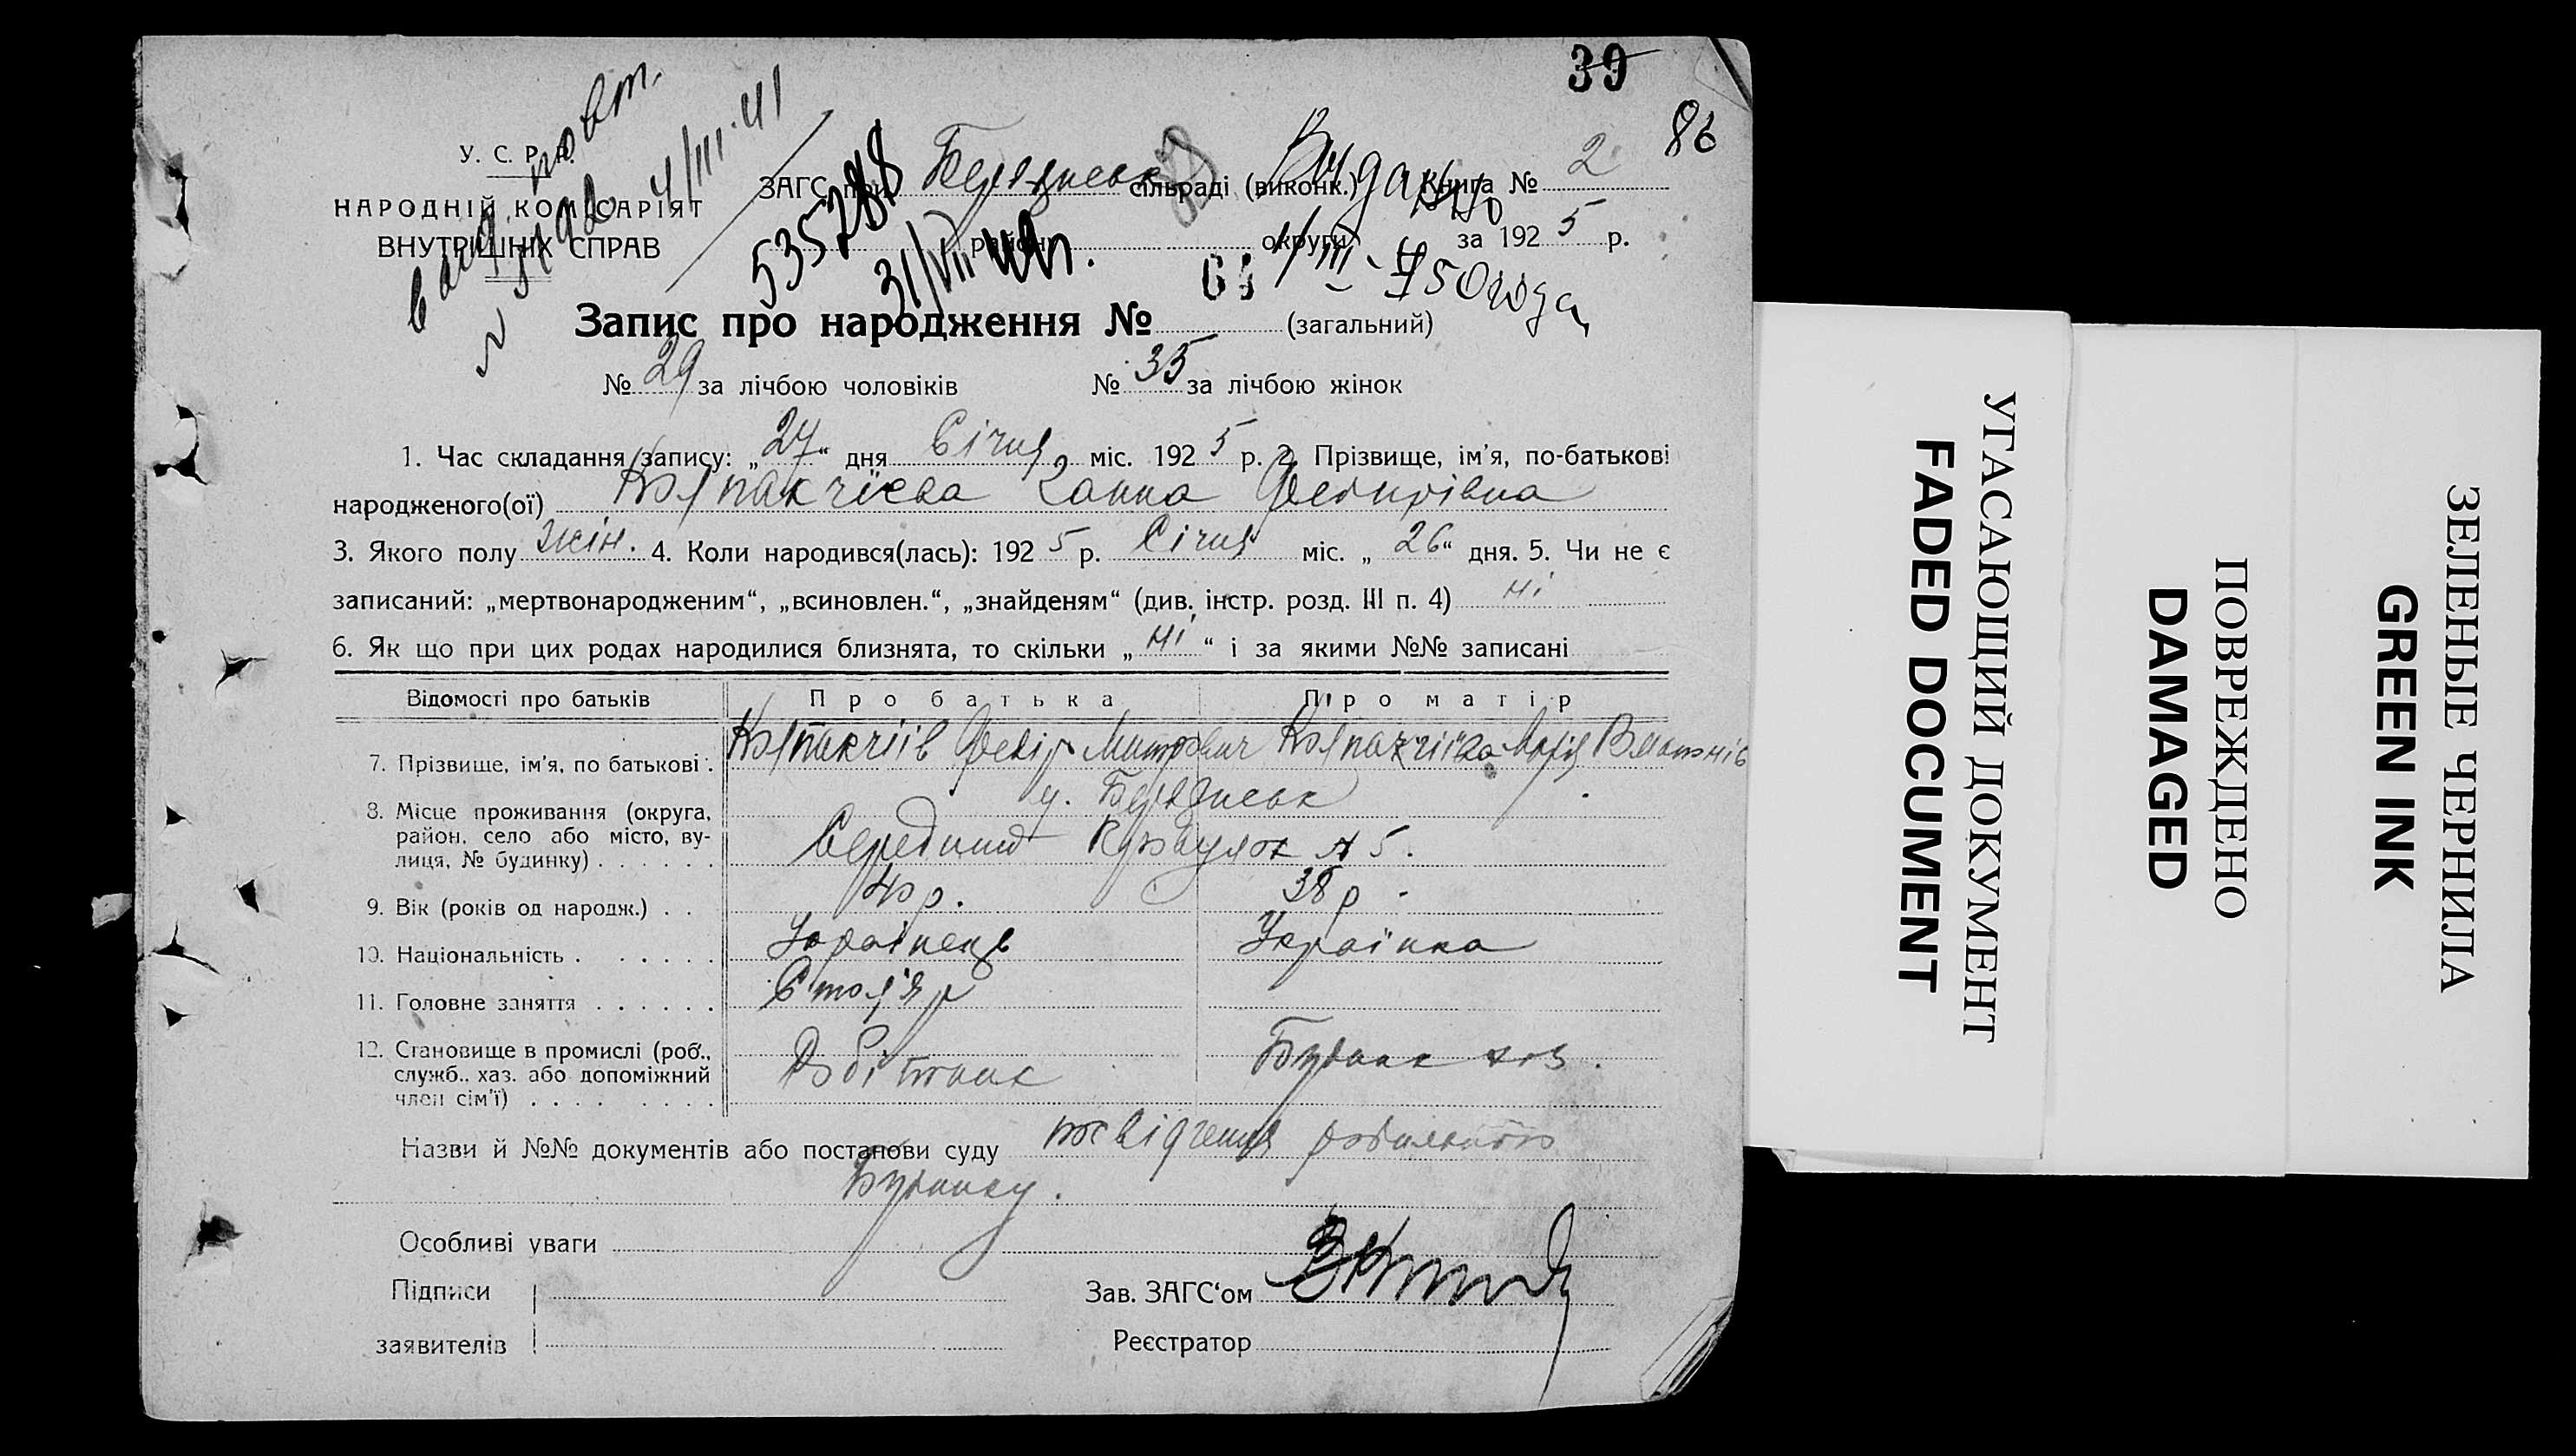 39
86
У. С. Р. Р.
НАРОДНІЙ КОМІСАРІЯТ
ВНУТРІШНІХ СПРАВ
повт.
4/III-41
ЗАГС при сільраді (виконк.) Книга № 2
Видано
535288
району округи за 1925 р.
31/VII
1/III-50 года
Запис про народження № 64 (загальний)
№ 29 за лічбою чоловіків № 35 за лічбою жінок
1. Час складання запису: „27“ дня Січня міс. 1925 р. 2. Прізвище, ім’я, по-батькові
народженого(ої) Колпакчієва Ганна Федорівна
3. Якого полу жін. 4. Коли народився(лась): 1925 р. Січня міс. „26“ дня. 5. Чи не є
записаний: „мертвонародженим“, „всиновлен.“, „знайденям“ (див. інстр. розд. III п. 4) ні
6. Як що при цих родах народилися близнята, то скільки „ні“ і за якими №№ записані
Відомості про батьків Про батька Про матір
7. Прізвище, ім’я, по батькові. Колпакчіів Федір Митрович Колпакчіїва Марія
8. Місце проживання (округа,
район, село або місто, ву-
лиця, № будинку) . . . . . .
Середній № 5.
9. Вік (років од народж.) . . 40 р. 38 р.
10. Національність . . . . . . Українець Українка
11. Головне заняття . . . . . . Столяр
12. Становище в промислі (роб.,
служб., хаз. або допоміжний
член сім’ї) . . . . . . . .
Робітник
Назви й №№ документів або постанови суду посвідчення родильного
будинку.
Особливі уваги
Підписи
заявителів
Зав. ЗАГС‘ом
Реєстратор
УГАСАЮЩИЙ ДОКУМЕНТ
FADED DOCUMENT
ПОВРЕЖДЕНО
DAMAGED
ЗЕЛЕНЫЕ ЧЕРНИЛА
GREEN INK